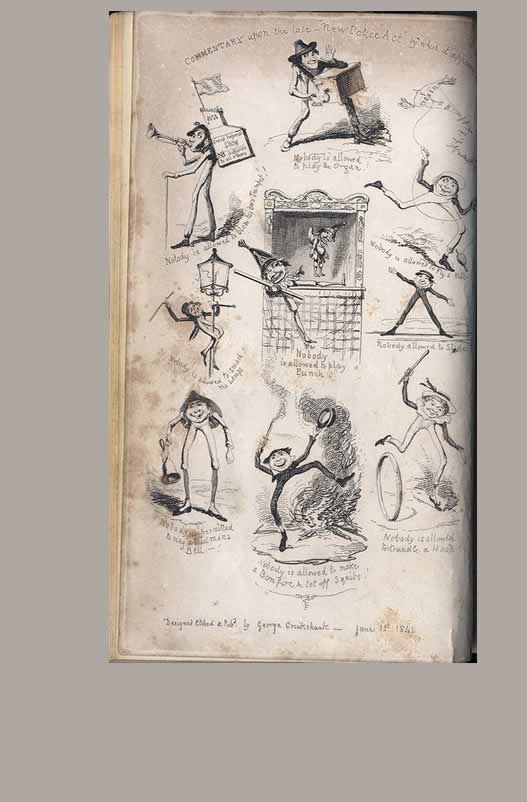 COMMENTARY upon the late - New Police Act by which it appears
Nobody is allowed
to play the Organ!
Show
Nobody is allowed to blow his own Trumpet!
Nobody is allowed to Fly a Kite
Nobody
is allowed to play
Punch!
Nobody allowed to Slide
Nobody is allowed to smash
the Lamps
Nobody is permitted
to ring a
Bell
Nobody is allowed to make
a Bonfire & let off Squibs!
Nobody is allowed
to trundle a Hoop
Designed Etched & Pubd by George Cruikshank - June 1st 184